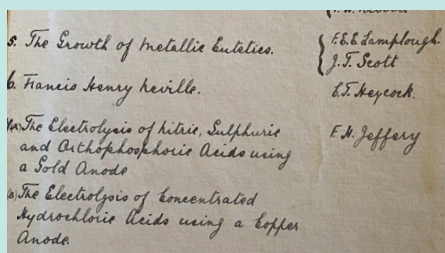 5. The Growth of Metallic Eutetics. { F.E.E. Lamplough
J.T. Scott
6. Francis Henry Neville. C.T. Heycock.
7(A) The Electrolysis of Nitric, Sulphuric F.H. Jeffery
and Orthophosphoric Acids using
a Gold Anode
(B) The Electrolysis of Concentrated
Hydrochloric Acids using a Copper
Anode.